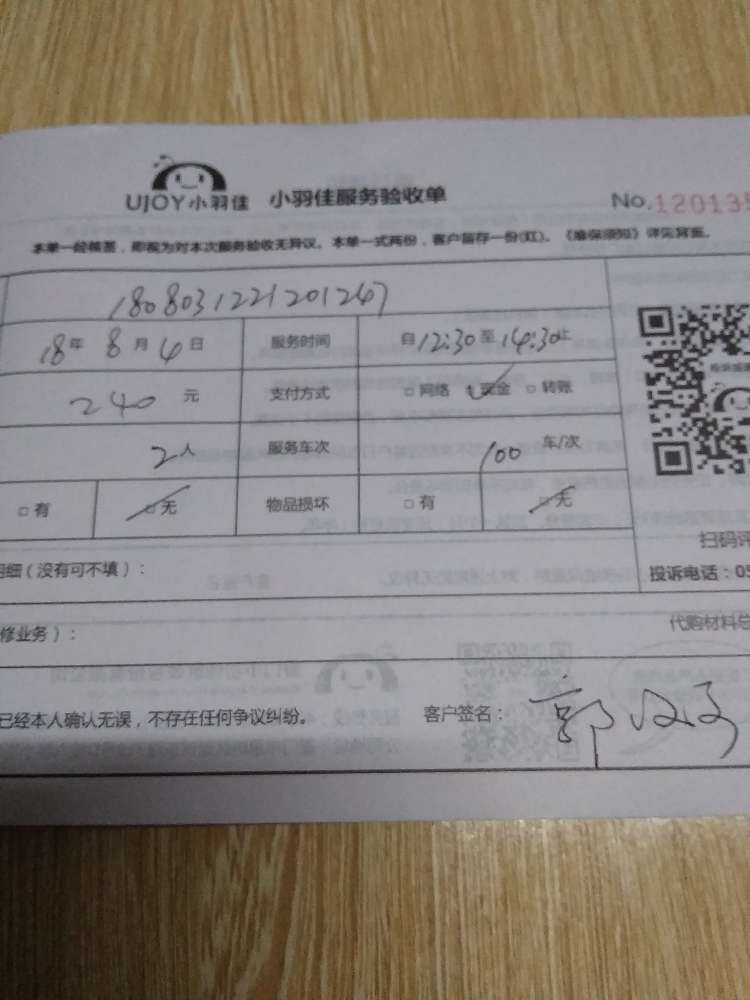 UJOY小羽佳 小羽佳服务验收单 No.120135
本单一经签署，即视为对本次服务验收无异议。本单一式两份，客户留存一份(红)。《维保须知》详见背面。
1808031221201247
18年 8月 4日 服务时间 自12:30至14:30止
240 元 支付方式 □网络 □现金 □转账
2人 服务车次 100 车/次
□有 □无 物品损坏 □有 □无
扫码评
明细（没有可不填）： 投诉电话：05
修业务）： 代购材料总
已经本人确认无误，不存在任何争议纠纷。 客户签名： 郭